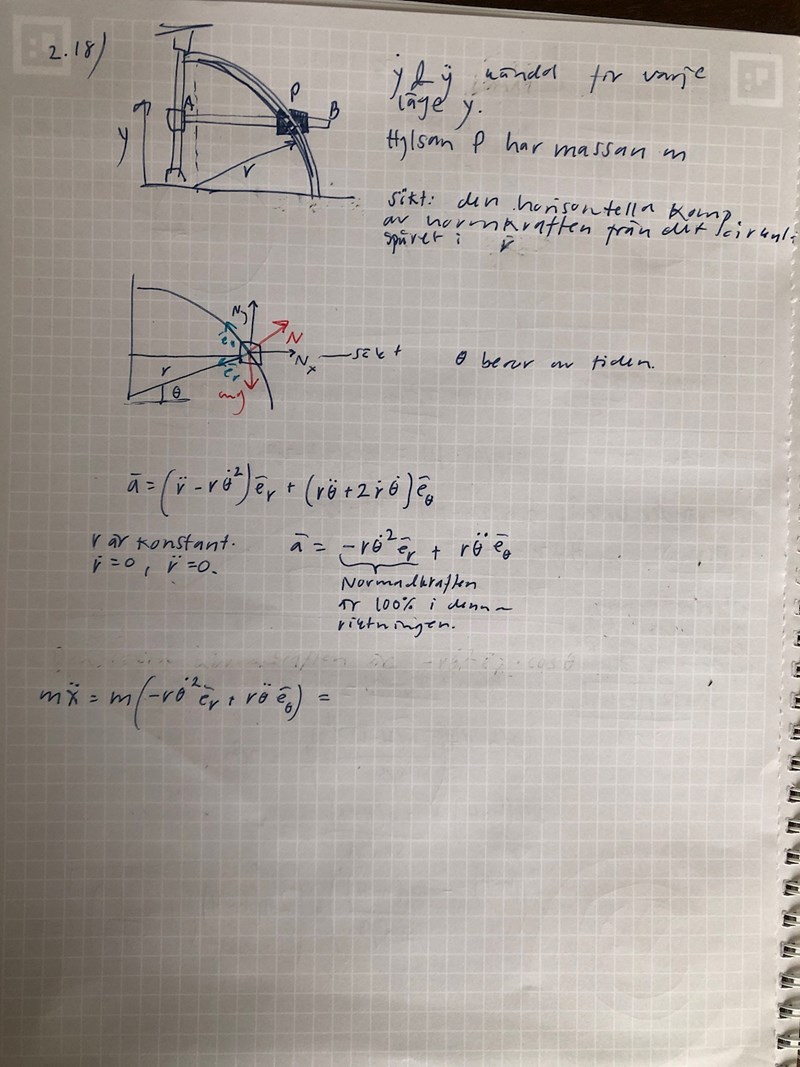 2.18)
A
P
B
y
r
ẏ & ÿ kända för varje
läge y.
Hylsan P har massan m
Sökt: den horisontella komp
av normkraften från det cirkul.
spåret i r̄
N_y
N
ē_θ
N_x sökt
ē_r
r
θ
mg
θ beror av tiden.
ā = (r̈ - rθ̇²)ē_r + (rθ̈ + 2ṙθ̇)ē_θ
r är konstant. ā = -rθ̇² ē_r + rθ̈ ē_θ
ṙ=0, r̈=0.
Normalkraften
är 100% i denna
riktningen.
mẍ = m(-rθ̇² ē_r + rθ̈ ē_θ) =